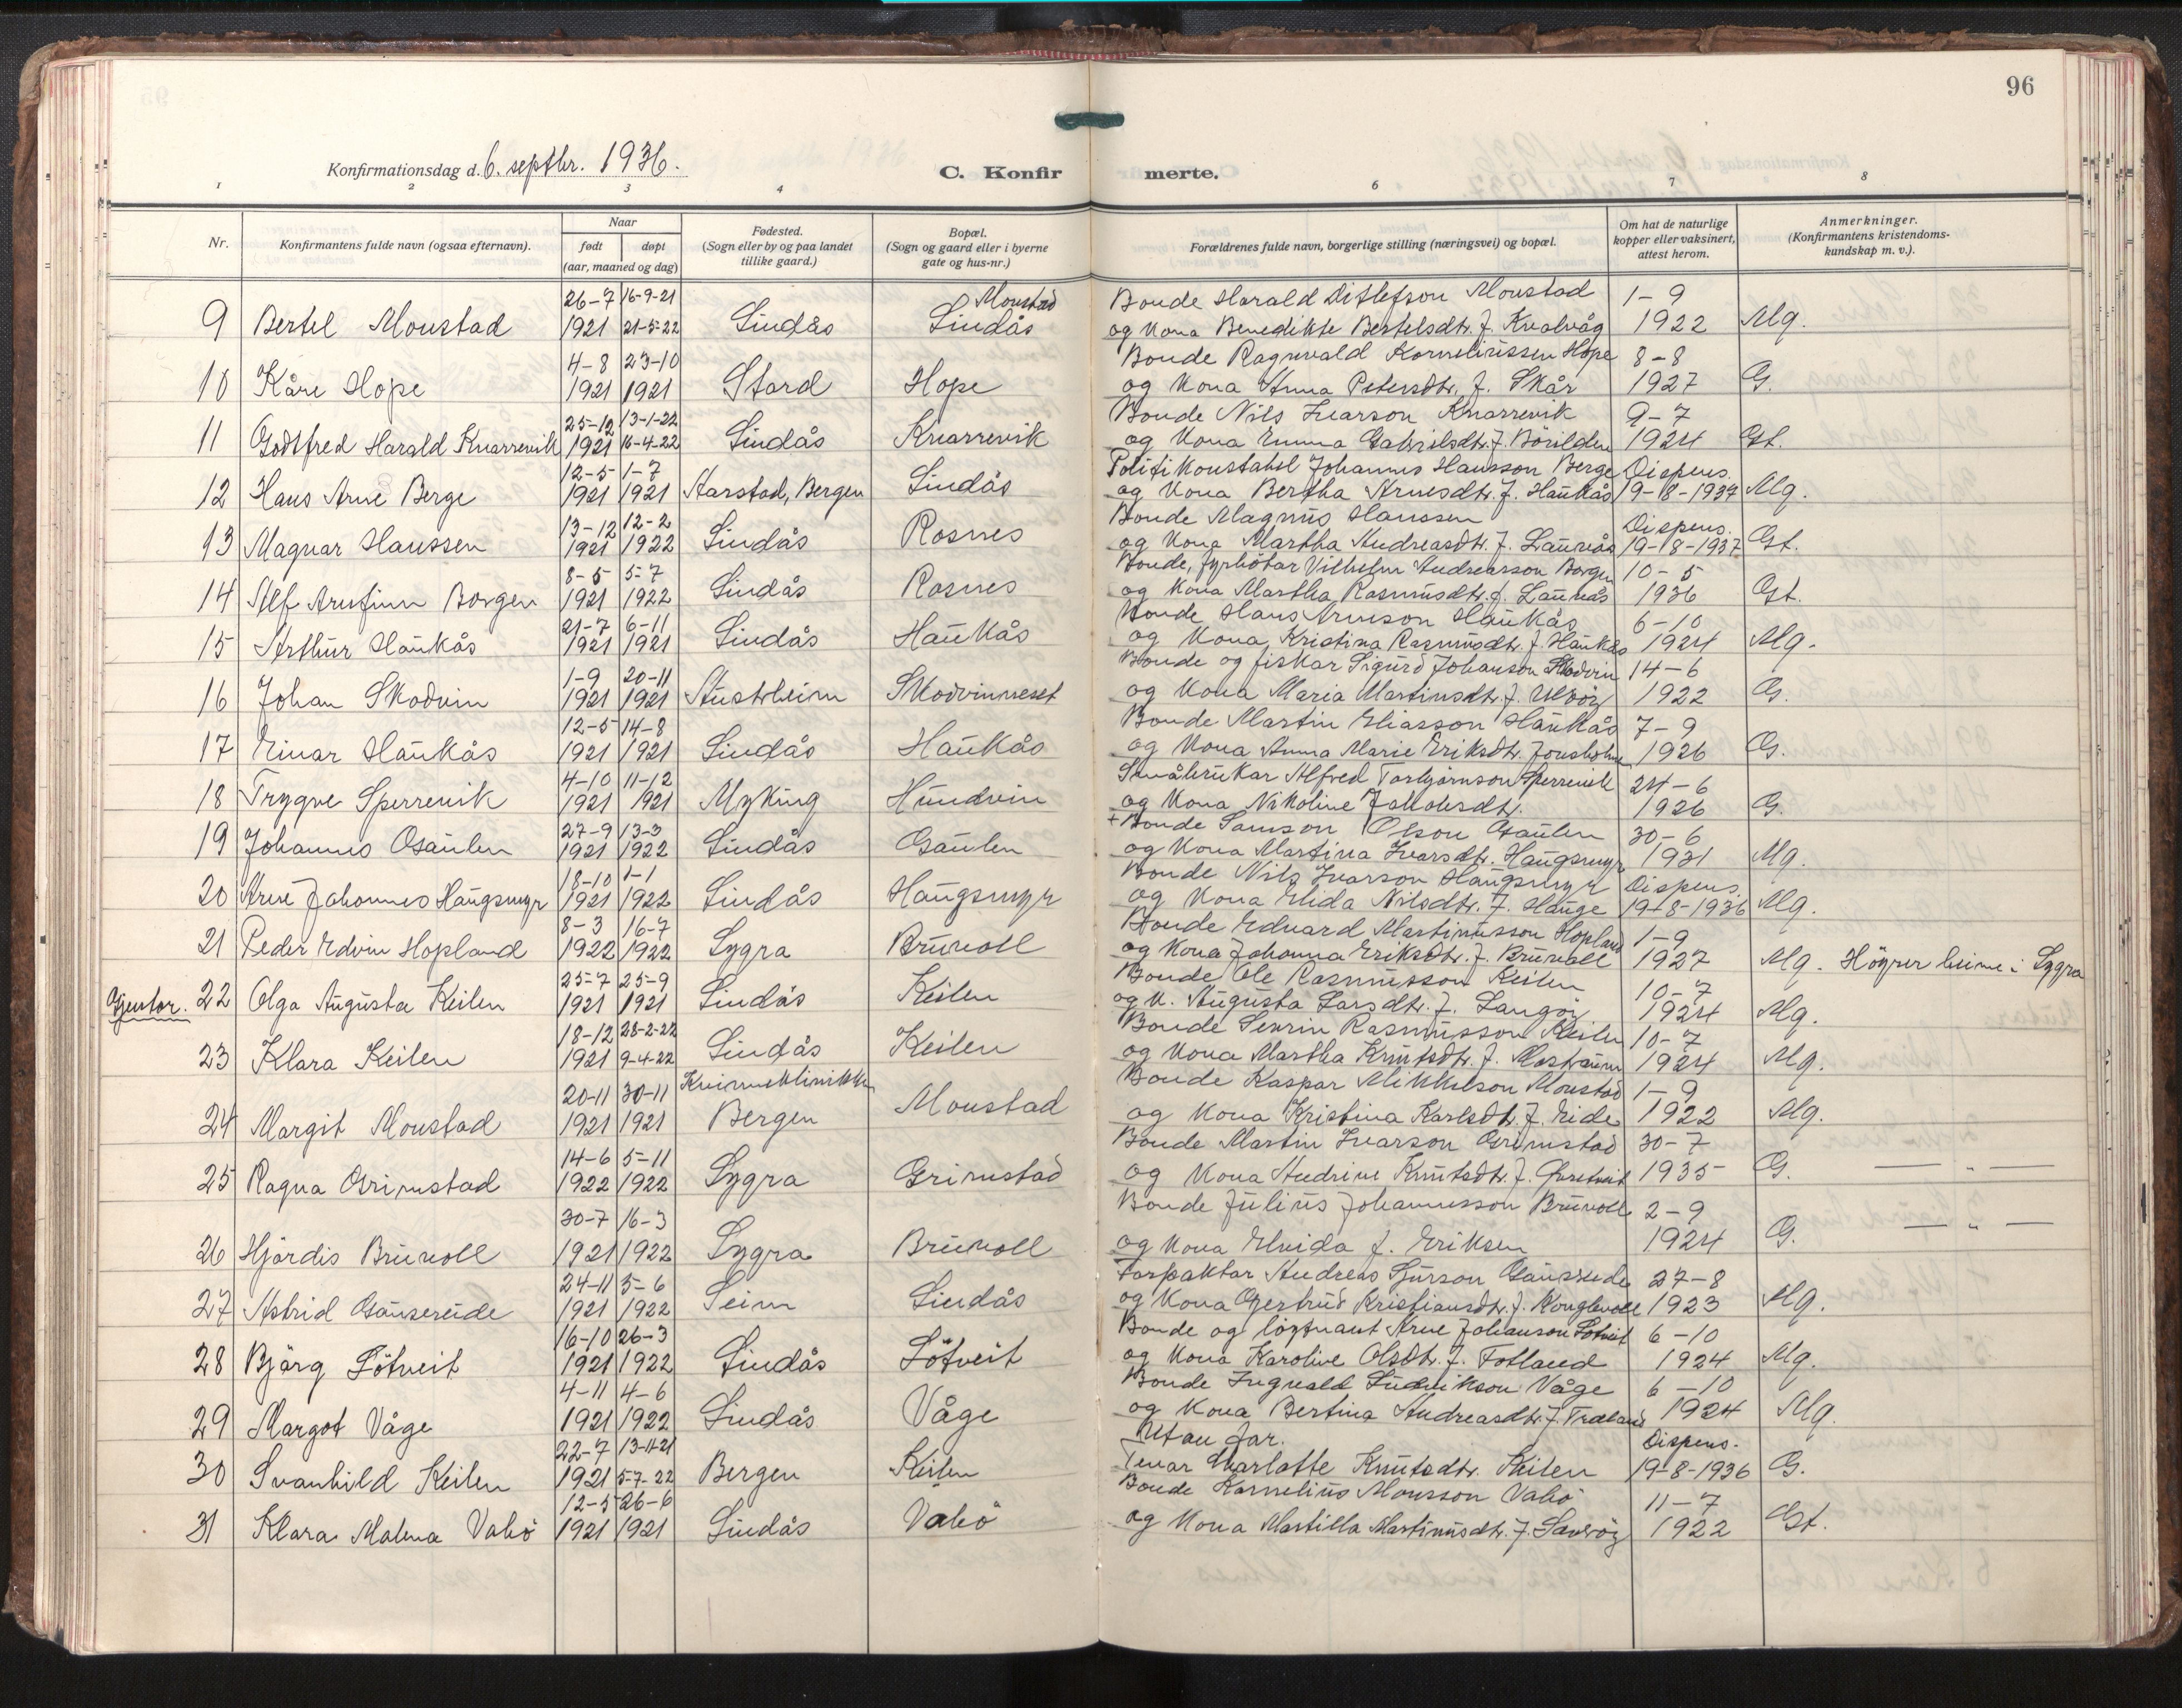 96
Konfirmationsdag d. 6. septbr. 1936.
C. Konfirmerte.
1 2 3 4 6 7 8
Nr.
Konfirmantens fulde navn (ogsaa efternavn).
Naar
født
døpt
(aar, maaned og dag)
Fødested.
(Sogn eller by og paa landet
tillike gaard.)
Bopæl.
(Sogn og gaard eller i byerne
gate og hus-nr.)
Forældrenes fulde navn, borgerlige stilling (næringsvei) og bopæl.
Om hat de naturlige
kopper eller vaksinert,
attest herom.
Anmerkninger.
(Konfirmantens kristendoms-
kundskap m. v.).
26-7 16-9-21 Monstad Bonde Harald Ditlefson Monstad 1-9
9 Bertel Monstad 1921 21-5-22 Lindås Lindås og kona Benedikte Bertelsdtr. f. Kvalvåg 1922 Mg.
4-8 23-10 Bonde Ragnvald Korneliussen Hope 8-8
10 Kåre Hope 1921 1921 Stord Hope og kona Anna Petersdtr. f. Skår 1927 G.
25-12 13-1-22 Bonde Nils Ivarson Knarrevik 9-7
11 Godtfred Harald Knarrevik 1921 16-4-22 Lindås Knarrevik og kona Emma Gabrielsdtr. f. Börilden 1924 Gt.
12-5 1-7 Politikonstabel Johannes Hansson Berge Dispens.
12 Hans Arne Berge 1921 1921 Aarstad, Bergen Lindås og kona Bertha Arnesdtr. f. Haukås 19-8-1937 Mg.
13-12 12-2 Bonde Magnus Hanssen Dispens.
13 Magnar Hanssen 1921 1922 Lindås Rosnes og kona Martha Andreasdtr. f. Laurås 19-8-1937 Gt.
8-5 5-7 Bonde, fyrbötar Vilhelm Andreasson Borgen 10-5
14 Alf Arnfinn Borgen 1921 1922 Lindås Rosnes og kona Martha Rasmusdtr. f. Laurås 1936 Gt.
21-7 6-11 Bonde Hans Arneson Haukås 6-10
15 Arthur Haukås 1921 1921 Lindås Haukås og kona Kristina Rasmusdtr. f. Haukås 1924 Mg.
1-9 20-11 Bonde og fiskar Sigurd Johanson Skodvin 14-6
16 Johan Skodvin 1921 1921 Austrheim Skodvinneset og kona Maria Martinsdtr. f. Ulvöy 1922 G.
12-5 14-8 Bonde Martin Eliasson Haukås 7-9
17 Einar Haukås 1921 1921 Lindås Haukås og kona Anna Marie Eriksdtr. Jonsholmen 1926 G.
4-10 11-12 Småbrukar Alfred Torbjörnson Sperrevik 24-6
18 Trygve Sperrevik 1921 1921 Myking Hundvin og kona Nikoline Jakobsdtr. 1926 G.
27-9 13-3 + Bonde Samson Olson Gaulen 30-6
19 Johannes Gaulen 1921 1922 Lindås Gaulen og kona Martina Ivarsdtr. Haugsmyr 1931 Mg.
18-10 1-1 Bonde Nils Ivarson Haugsmyr Dispens.
20 Arne Johannes Haugsmyr 1921 1922 Lindås Haugsmyr og kona Elida Nilsdtr. f. Hauge 19-8-1936 Mg.
8-3 16-7 Bonde Edvard Martinusson Hopland 1-9
21 Peder Edvin Hopland 1922 1922 Lygra Bruvoll og kona Johanna Eriksdtr. f. Bruvoll 1927 Mg. Höyrer heime i Lygra
25-7 25-9 Bonde Ole Rasmusson Keilen 10-7
Gjentor. 22 Olga Augusta Keilen 1921 1921 Lindås Keilen og k. Augusta Larsdtr. f. Langöy 1924 Mg.
18-12 28-2-22 Bonde Severin Rasmusson Keilen 10-7
23 Klara Keilen 1921 9-4-22 Lindås Keilen og kona Martha Knutsdtr. f. Mostraum 1924 Mg.
20-11 30-11 Kvinneklinikken Bonde Kaspar Mikkelson Monstad 1-9
24 Margit Monstad 1921 1921 Bergen Monstad og kona Kristina Karlsdtr. f. Eide 1922 Mg.
14-6 5-11 Bonde Martin Ivarson Grimstad 30-7
25 Ragna Grimstad 1922 1922 Lygra Grimstad og kona Andrine Knutsdtr. f. 1935 G. — „ —
30-7 16-3 Bonde Julius Johannesson Bruvoll 2-9
26 Hjördis Bruvoll 1921 1922 Lygra Bruvoll og kona Elvida f. Eriksen 1924 G. — „ —
24-11 5-6 Forpaktar Andreas Sjurson Gausereide 27-8
27 Astrid Gausereide 1921 1922 Seim Lindås og kona Gjertrud Kristiansdtr. f. Konglevoll 1923 Mg.
16-10 26-3 Bonde og löytnant Arne Johanson Lötveit 6-10
28 Björg Lötveit 1921 1922 Lindås Lötveit og kona Karoline Olsdtr. f. Fotland 1924 Mg.
4-11 4-6 Bonde Ingvald Ludvikson Våge 6-10
29 Margot Våge 1921 1922 Lindås Våge og kona Bertina Andreasdtr. f. Træland 1924 Mg.
22-7 13-11-21 Utan far. Dispens.
30 Svanhild Keilen 1921 5-7-22 Bergen Keilen Tenar Charlotte Knutsdtr. Keilen 19-8-1936 G.
12-5 26-6 Bonde Kornelius Monsson Vabö 11-7
31 Klara Malena Vabö 1921 1921 Lindås Vabö og kona Martilla Martinusdtr. f. Sævröy 1922 Gt.